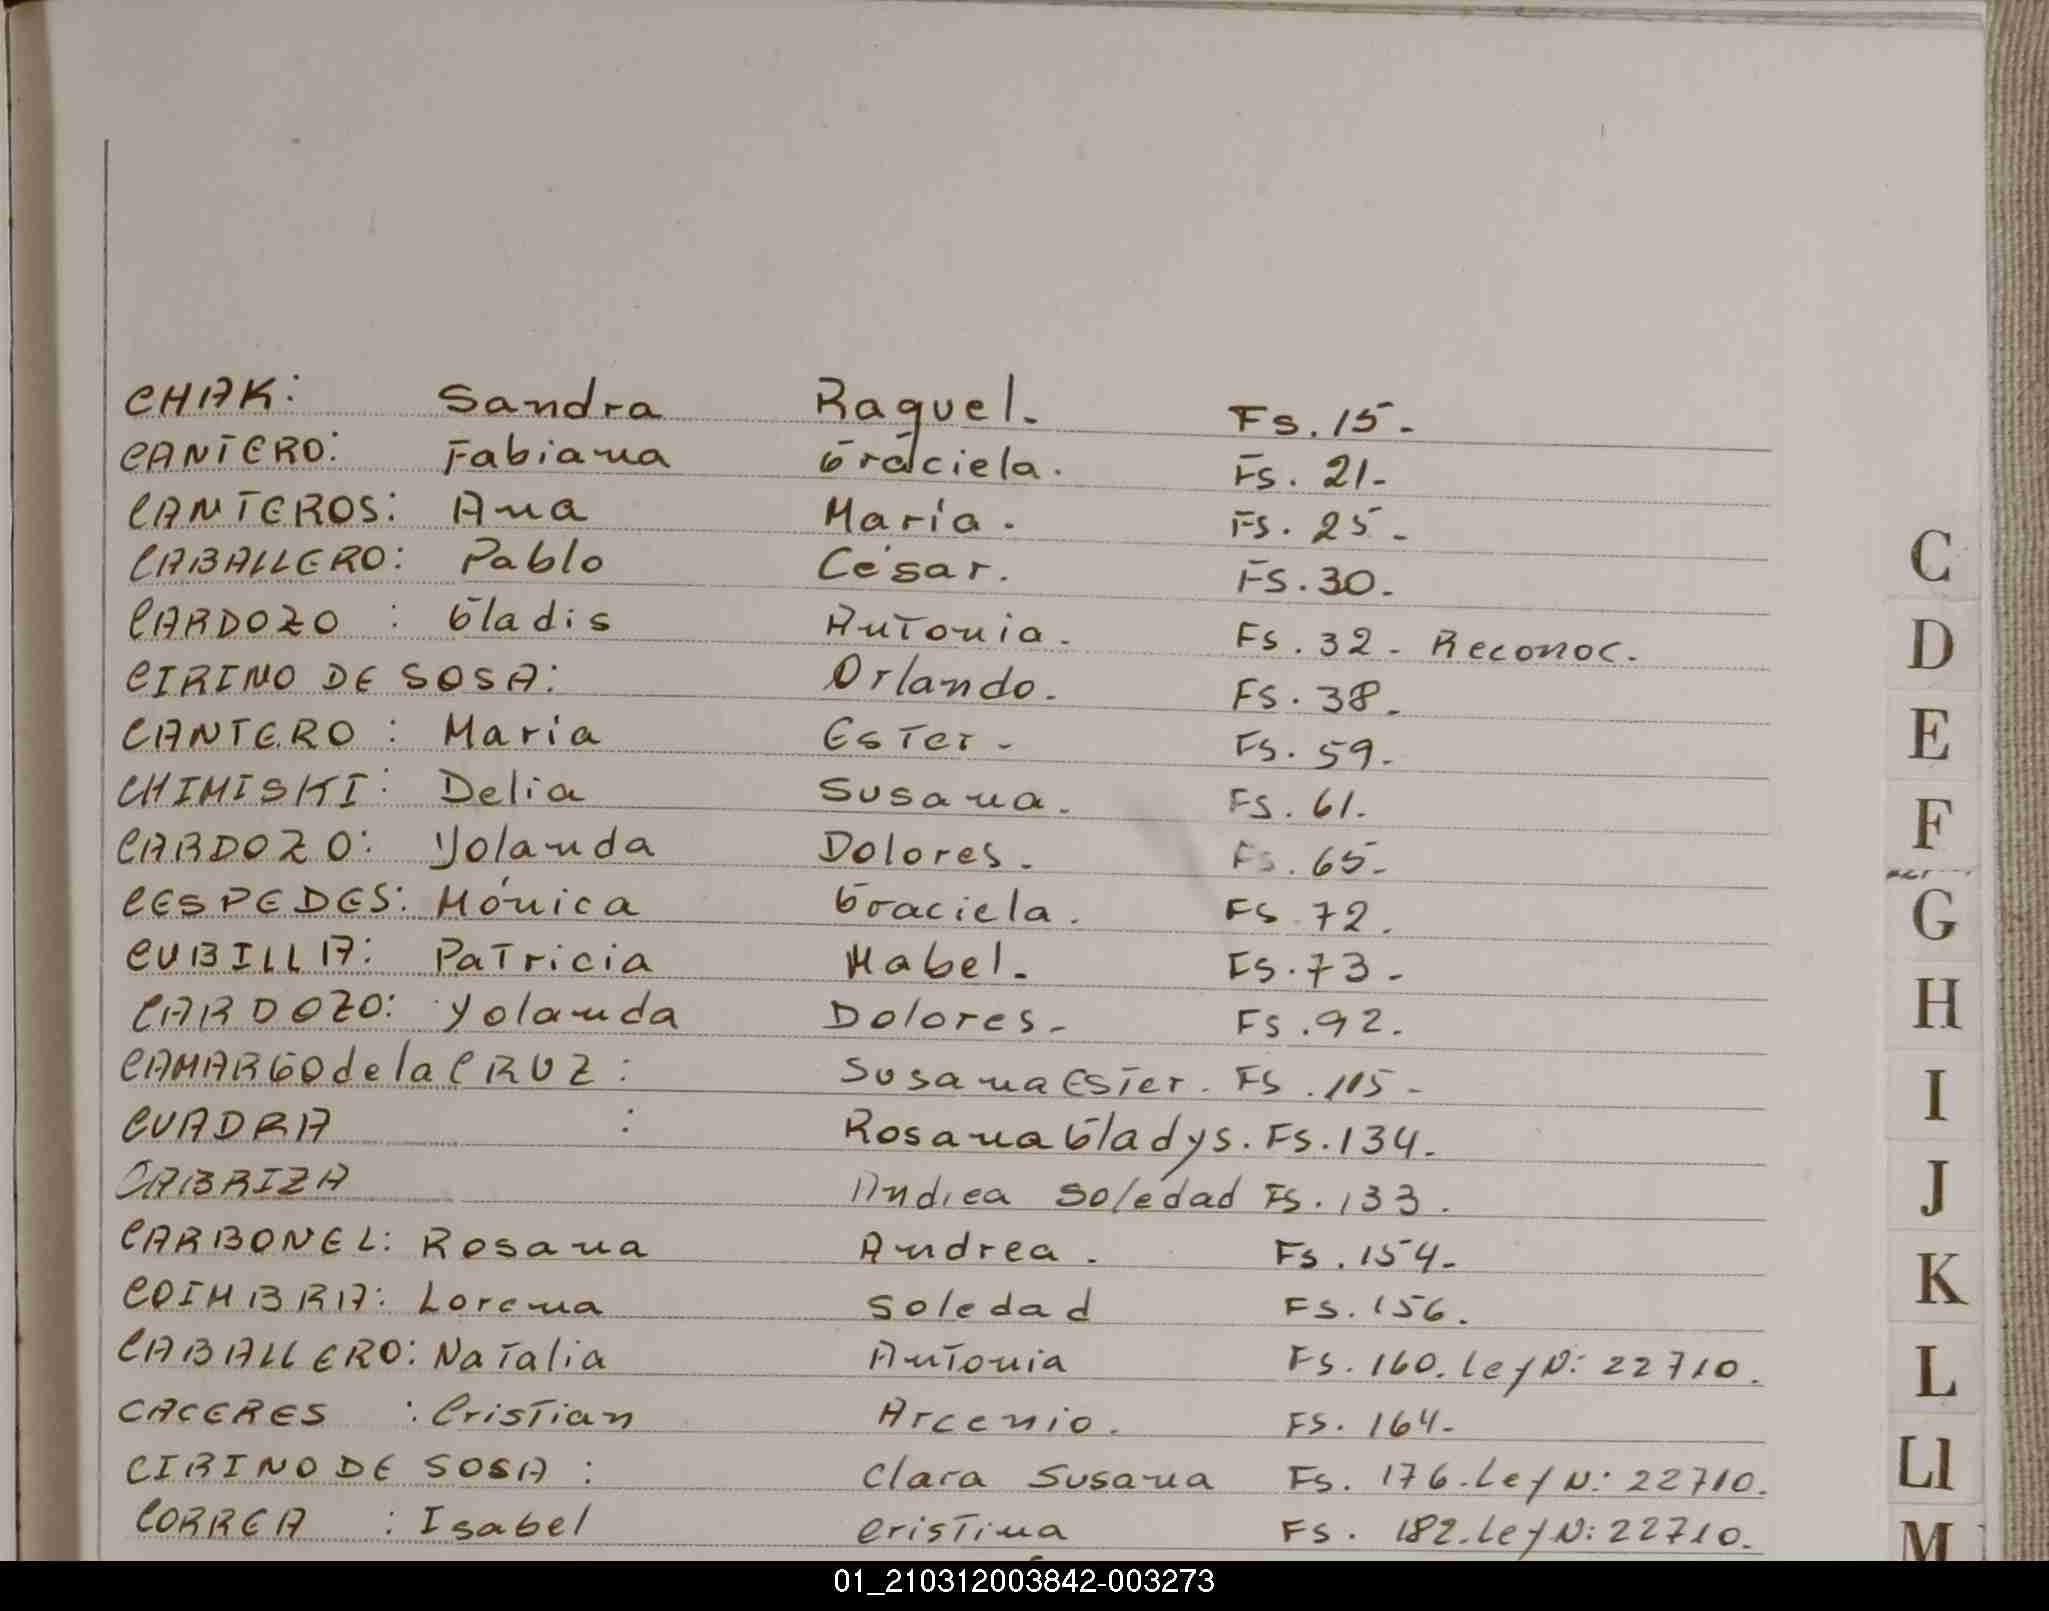 CHAK: Sandra Raquel. Fs. 15.
CANTERO: Fabiana Graciela. Fs. 21.
CANTEROS: Ana María. Fs. 25.
CABALLERO: Pablo César. Fs. 30.
CARDOZO : Gladis Antonia. Fs. 32. Reconoc.
CIRINO DE SOSA: Orlando. Fs. 38.
CANTERO : María Ester. Fs. 59.
CHIMISKI: Delia Susana. Fs. 61.
CARDOZO: Yolanda Dolores. Fs. 65.
CESPEDES: Mónica Graciela. Fs. 72.
CUBILLA: Patricia Mabel. Fs. 73.
CARDOZO: Yolanda Dolores. Fs. 92.
CAMARGO de la CRUZ : Susana Ester. Fs. 115.
CUADRA : Rosana Gladys. Fs. 134.
CABRIZA Andrea Soledad Fs. 133.
CARBONEL: Rosana Andrea. Fs. 154.
COIMBRA: Lorena Soledad Fs. 156.
CABALLERO: Natalia Antonia Fs. 160. Ley N: 22710.
CACERES : Cristian Arcenio. Fs. 164.
CIRINO DE SOSA : Clara Susana Fs. 176. Ley N: 22710.
CORREA : Isabel Cristina Fs. 182. Ley N: 22710.
C
D
E
F
G
H
I
J
K
L
Ll
M
01_210312003842-003273